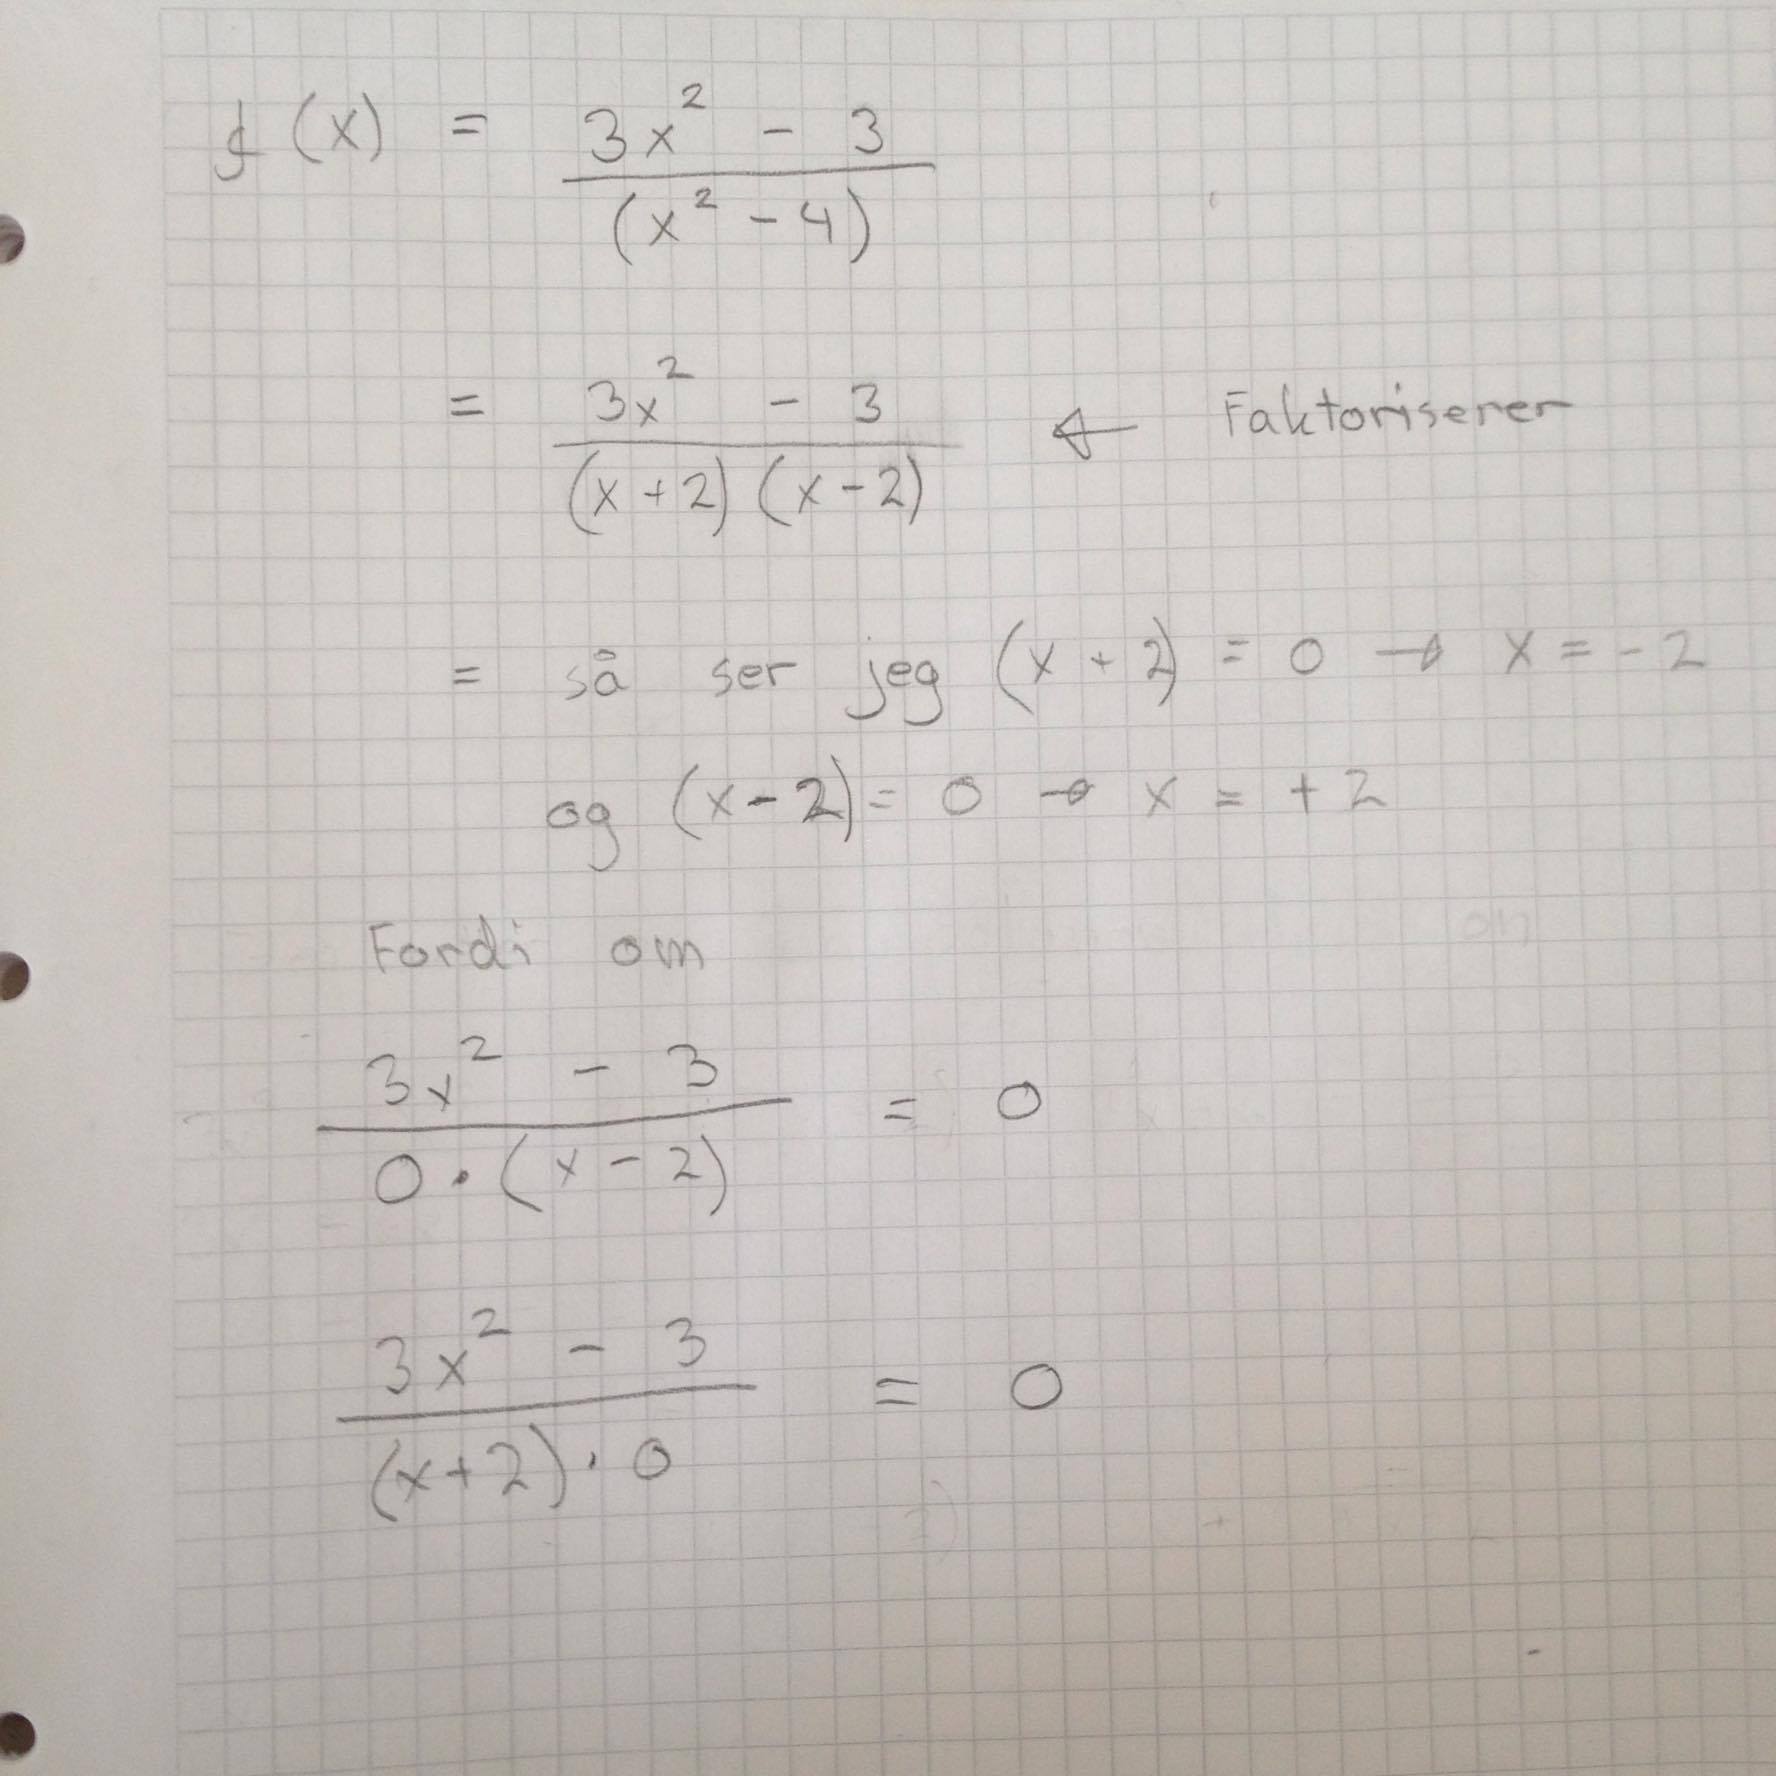 f(x) = 3x² - 3
(x² - 4)
= 3x² - 3 ← Faktoriserer
(x + 2) (x - 2)
= så ser jeg (x + 2) = 0 → x = - 2
og (x - 2) = 0 → x = + 2
Fordi om
3x² - 3 = 0
0 · (x - 2)
3x² - 3 = 0
(x + 2) · 0